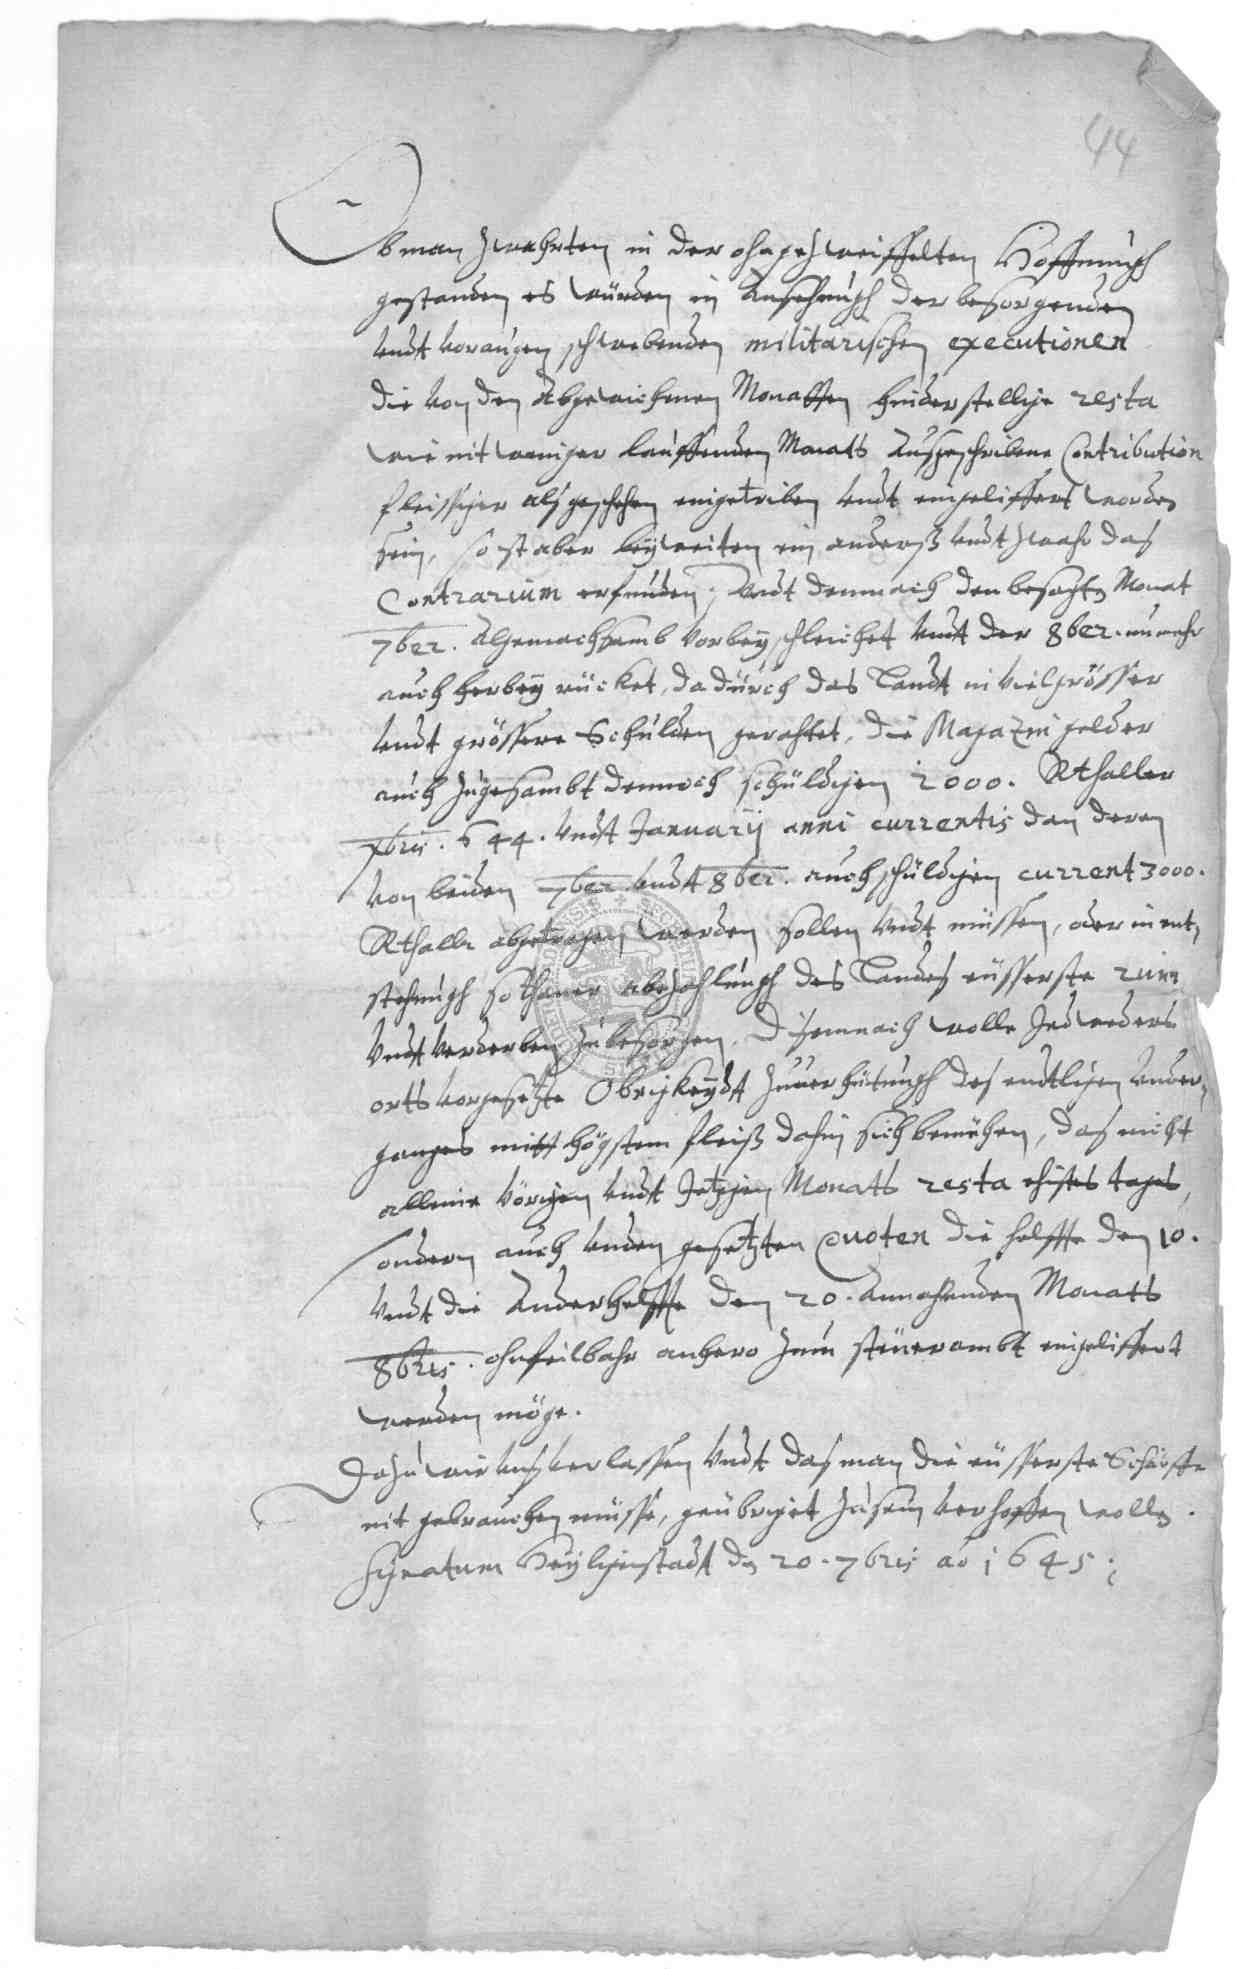 44
Ob man zwahrten in der ohngezweiffelten Hoffnungh
gestanden es würden in Ansehungh der besorgenden
undt vor augen schwebenden militarischen executionen
die von den Abgewichenen Monatten hinderstellige resta
wie nit weniger lauffenden Monats Ausgeschribene Contribution
fleissiger alß geschehen eingetriben undt eingeliffert worden
sein, so ist aber beyweiten ein anderß undt zwahr das
Contrarium erfunden; Undt demnach den besagten Monat
7ber. Algemachsamb vorbey schleichet undt der 8ber. nunmehr
auch herbey rücket, dadurch das Landt in viel grösser
undt grössere Schulden gerahtet, die Magazin gelder
auch zugesambt dennoch schuldigen 2000. Rthaller
xbris. 644. undt January anni currentis dan deren
von beiden 7ber undt 8ber. auch schuldigen current 3000.
Rthallr abgetragen werden sollen undt müssen, oder in ent,
stehungh so thaner abezahlungh des Landes eüsserste ruin
undt verderben zu besorgen. Disemnach wolle Jedweders
orts vorgesetzte Obrigkeydt zu verhütungh des endtligen under,
ganges mitt högstem fleiß dahin sich bemühen, das nicht
alleine vörigen undt Jetzigen Monats resta ehistes tages,
sondern auch anden gesetzten Quoten die helffte den 10.
undt die Anderhelffte den 20. Annahenden Monats
8bris. ohnfeilbahr anhero zum steuerambt eingeliffert
werden möge.
Dazu wir unß verlassen undt das man die eüsserste Schärffe
nit gebrauchen müsse, geübriget zu sein verhoffen wollen.
Signatum Heyligenstadt den 20. 7bris ao 1645;